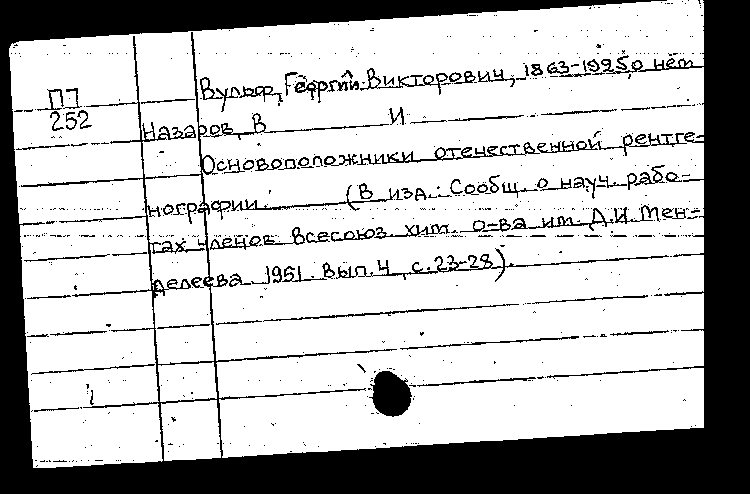 Вульф, Георгий Викторович, 1863-1925, о нём
ПП
252
Назаров, В И
Основоположники отечественной рентге-
нографии. (В изд.: Сообщ. о науч. рабо-
тах членов Всесоюз. хим. о-ва им. Д.И. Мен-
делеева. 1951. Вып. 4, с. 23-28).